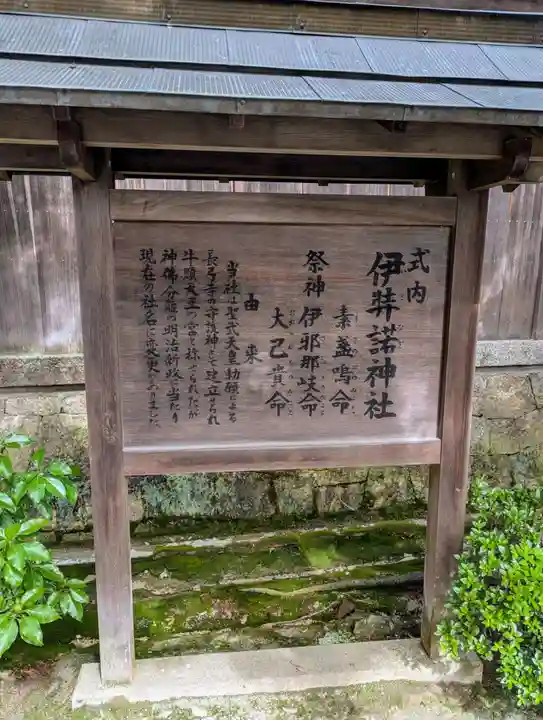 式内
伊弉諾神社
素盞嗚命
祭神 伊邪那岐命
大己貴命
由来
当社は聖武天皇勅願による
長弓寺の守護神として建立せられ
牛頭天王の宮と称せられたが
神佛分離の明治新政に当たり
現在の社名に変更になりました。